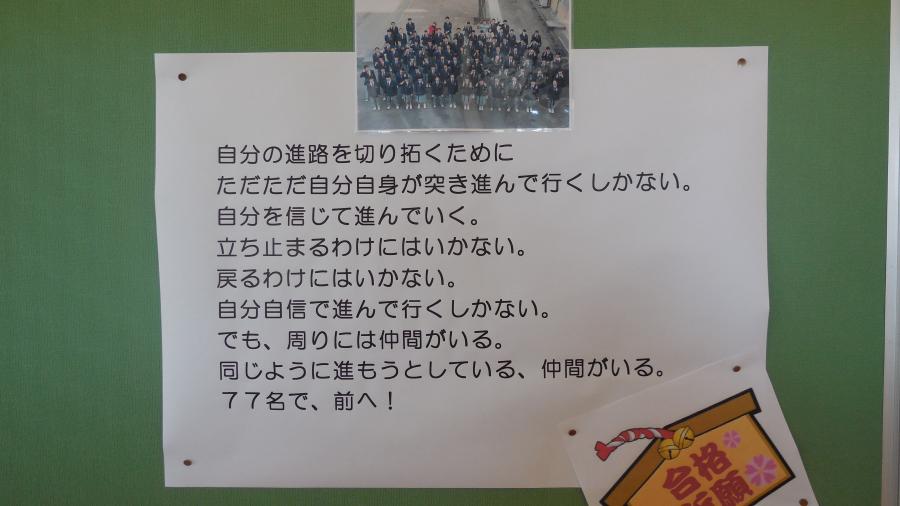 自分の進路を切り拓くために
ただただ自分自身が突き進んで行くしかない。
自分を信じて進んでいく。
立ち止まるわけにはいかない。
戻るわけにはいかない。
自分自信で進んで行くしかない。
でも、周りには仲間がいる。
同じように進もうとしている、仲間がいる。
77名で、前へ！
合格
祈願